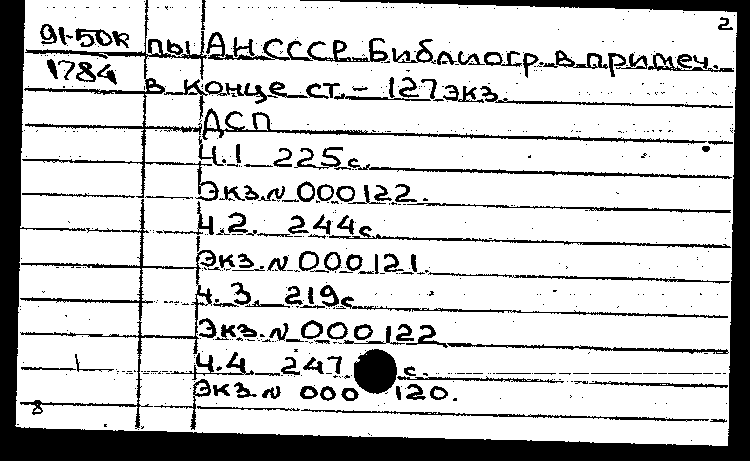 2
91-50к пы АН СССР. Библиогр. в примеч.
1784 в конце ст. - 127 экз.
ДСП
Ч.1 225 с.
Экз. N 000122.
Ч.2. 244 с.
Экз. N 000121.
Ч.3. 219 с
Экз. N 000122
Ч.4. 247 с.
Экз. N 000120.
8